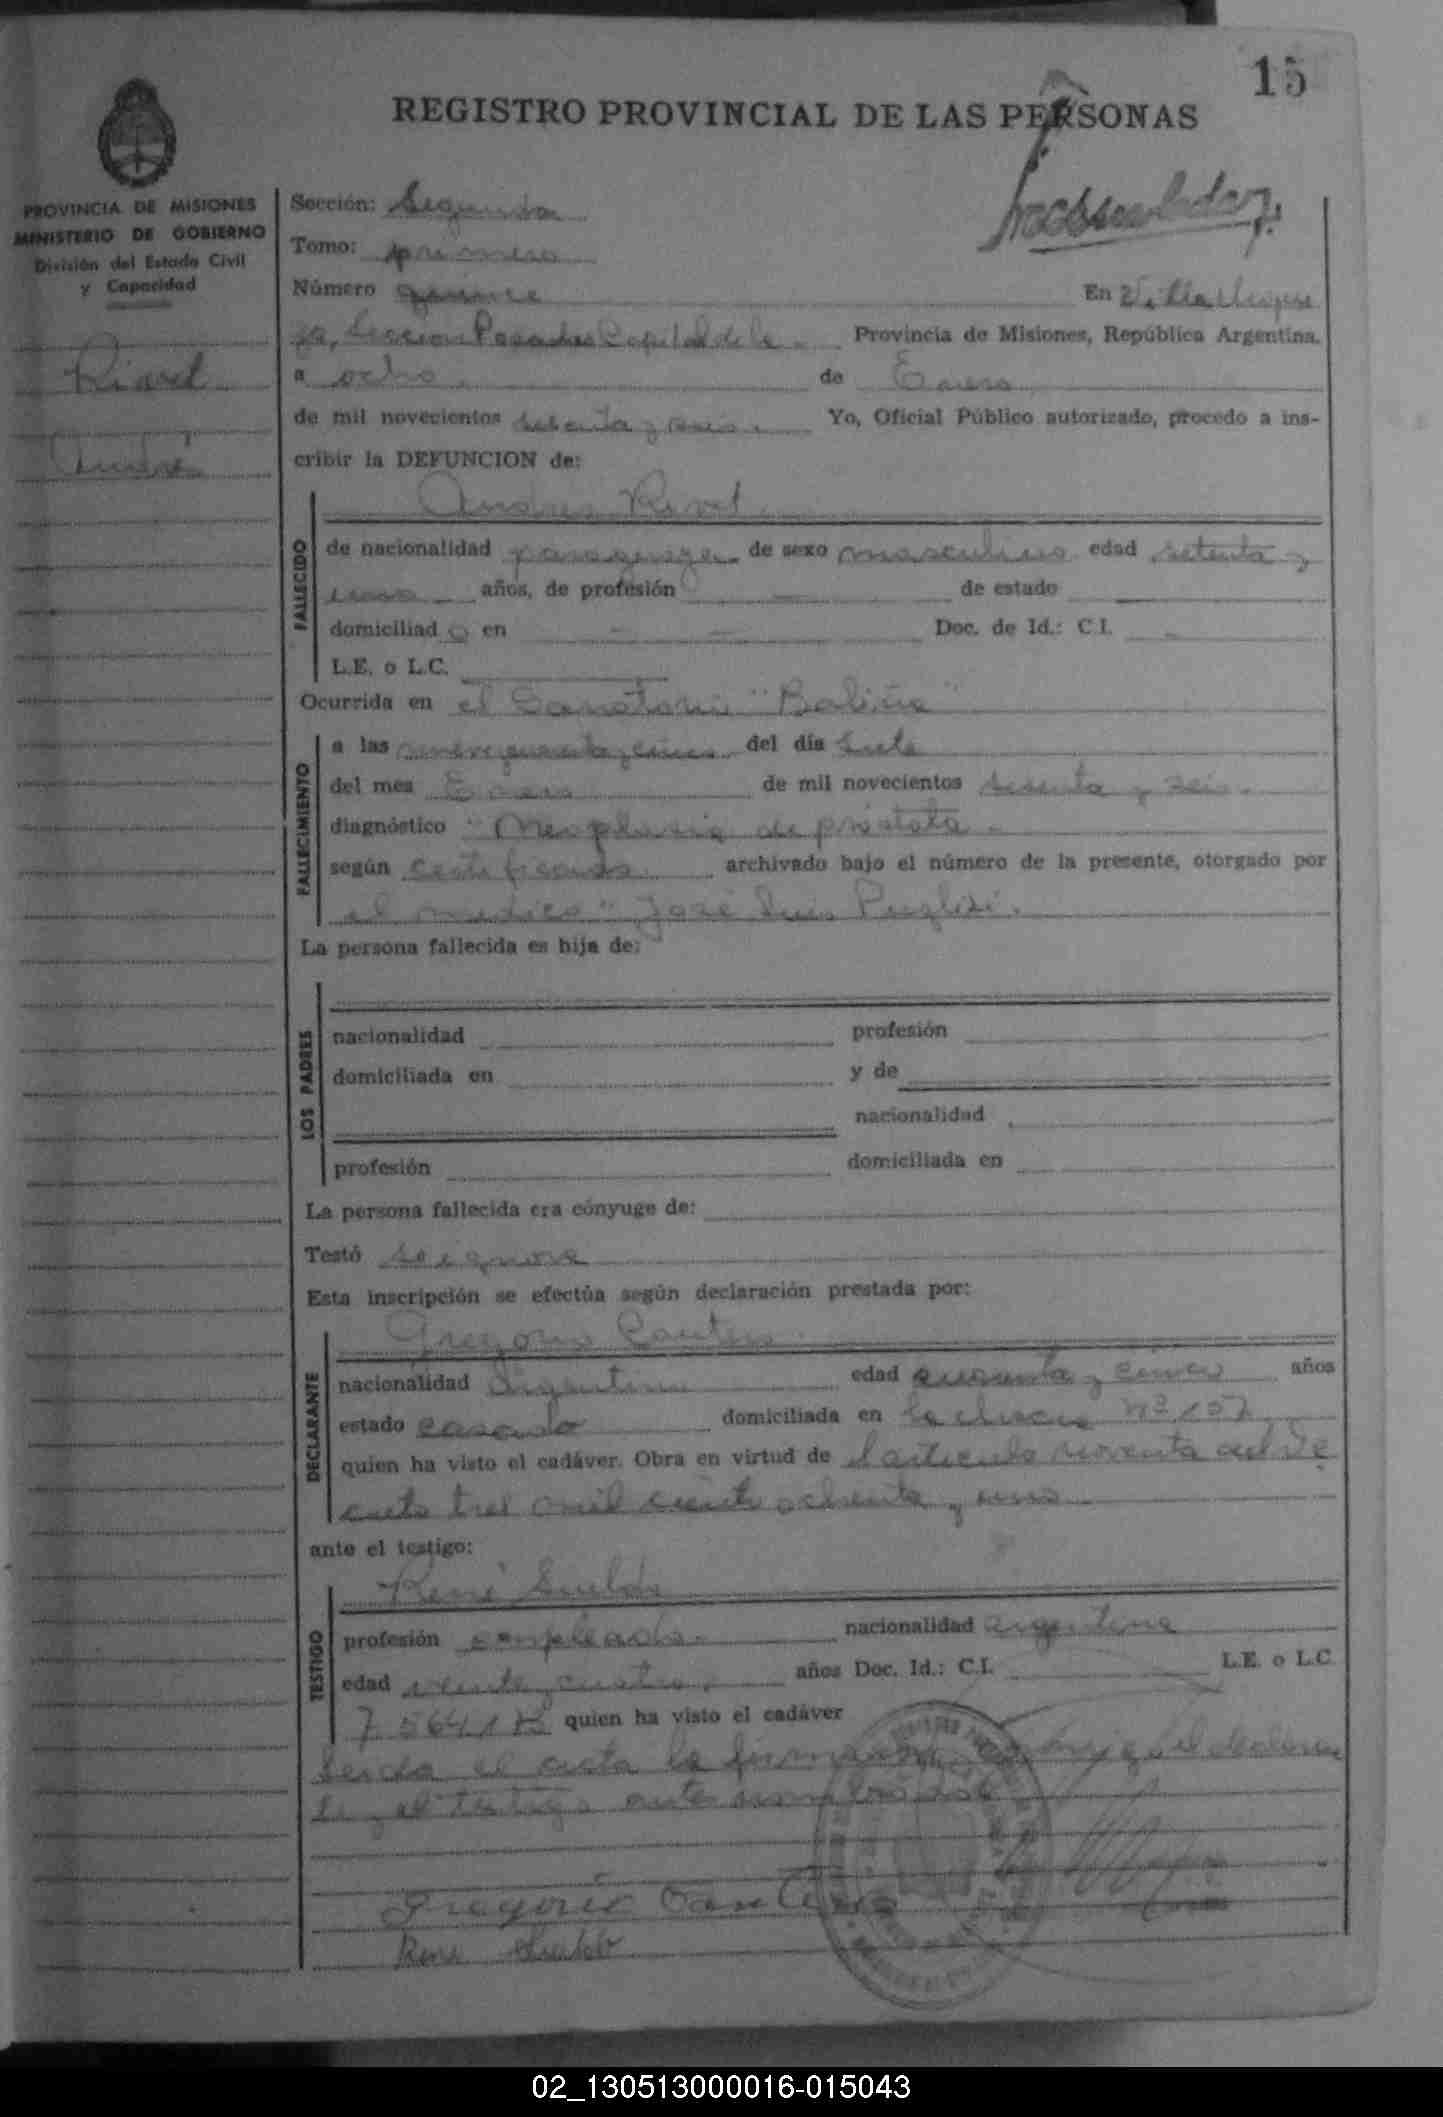 15
REGISTRO PROVINCIAL DE LAS PERSONAS
PROVINCIA DE MISIONES
MINISTERIO DE GOBIERNO
División del Estado Civil
y Capacidad
Sección: Segunda
Tomo: primero
Número quince En Villa
Sección Posadas Capital de la Provincia de Misiones, República Argentina,
a ocho de Enero
de mil novecientos sesenta y seis Yo, Oficial Público autorizado, procedo a ins-
cribir la DEFUNCION de:
Rivet
André
Andres Rivet
FALLECIDO
de nacionalidad paraguaya de sexo masculino edad setenta y
uno años, de profesión — de estado
domiciliado en — — Doc. de Id.: C.I. -
L.E. o L.C.
Ocurrida en el Sanatorio "Boliña"
FALLECIMIENTO
a las nueve y cuarenta y cinco del día siete
del mes Enero de mil novecientos sesenta y seis.
diagnóstico "Neoplasia de prostata
según certificado archivado bajo el número de la presente, otorgado por
el medico "José Luis Puglisi.
La persona fallecida es hija de:
LOS PADRES
nacionalidad profesión
domiciliada en y de
nacionalidad
profesión domiciliada en
La persona fallecida era cónyuge de:
Testó se ignora
Esta inscripción se efectúa según declaración prestada por:
DECLARANTE
Gregorio Cantero
nacionalidad argentina edad cuarenta y cinco años
estado casado domiciliada en la chacra Nº 157
quien ha visto el cadáver. Obra en virtud de el articulo noventa del De
creto tres mil ciento ochenta y uno
ante el testigo:
TESTIGO
René Sueldo
profesión empleado. nacionalidad argentina
edad veinte y cuatro. años Doc. Id.: C.I. L.E. o L.C.
quien ha visto el cadáver
Leida el acta la firmaron conmigo el declaran
te y el testigo ante nombrados
Gregorio Cantero
Rene Sueldo
02_130513000016-015043